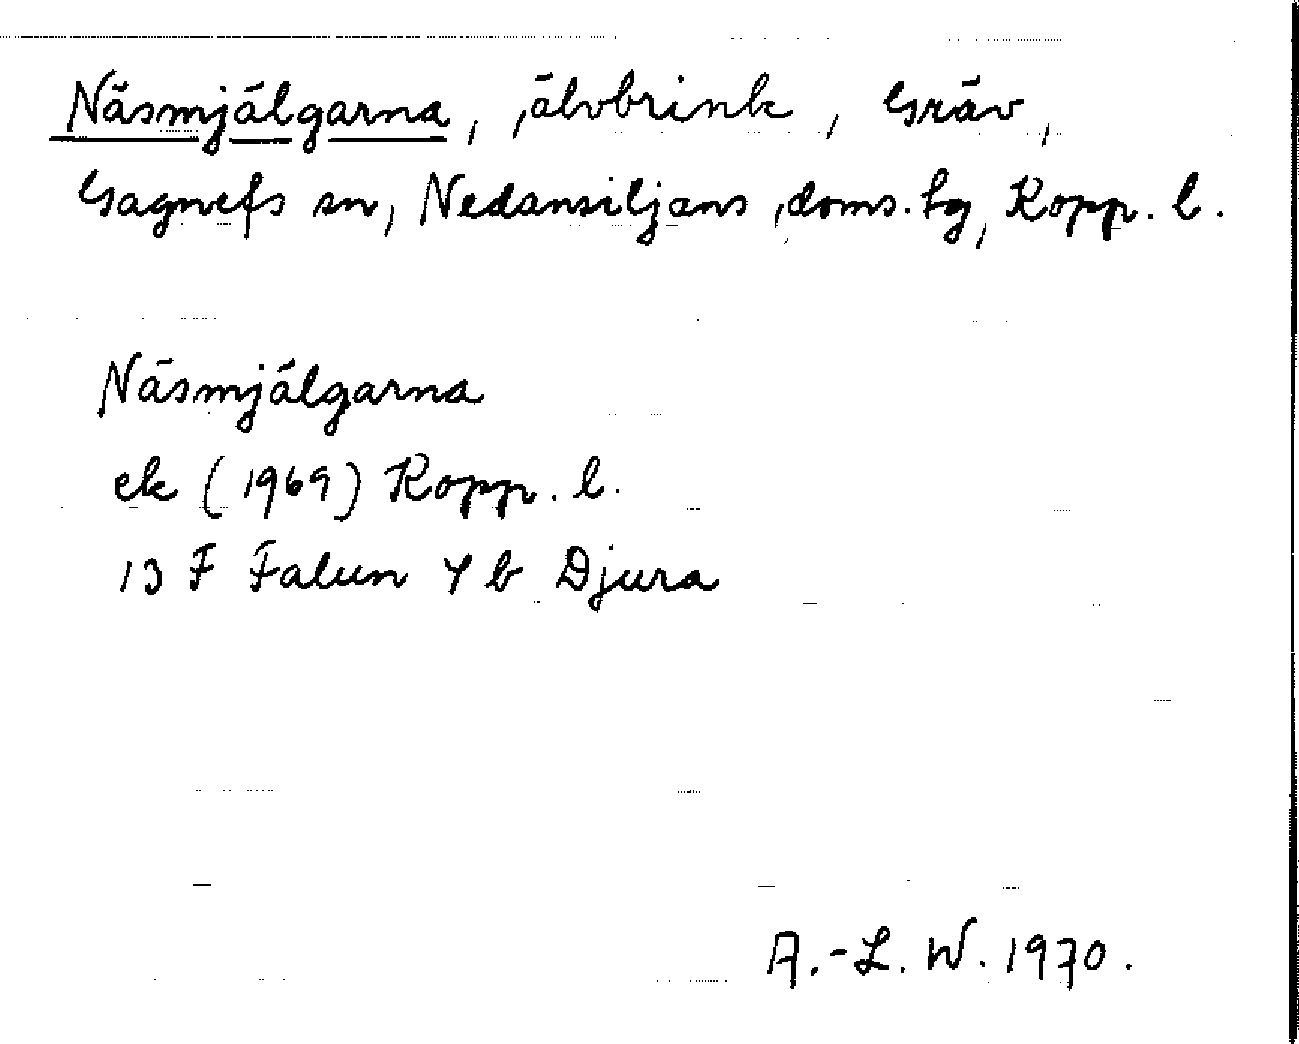 Näsmjälgarna, älvbrink, Gräv,
Gagnefs sn, Nedansiljans doms. hg, Kopp. l.
Näsmjälgarna
ek (1969) Kopp. l.
13 F Falun 4 b Djura
A.-L. W. 1970.